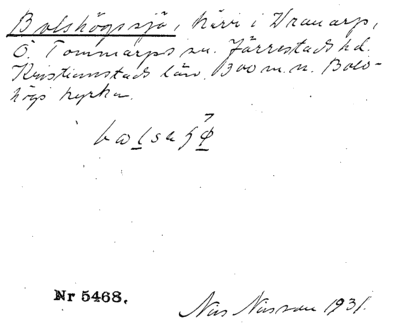 Bolshögssjö, kärr i Vranarp,
Ö. Tommarps sn. Järrestads hd.
Kristianstads län. 300 m. n. Bols-
högs kyrka.
Nr 5468.
Nils Nilsson 1931.